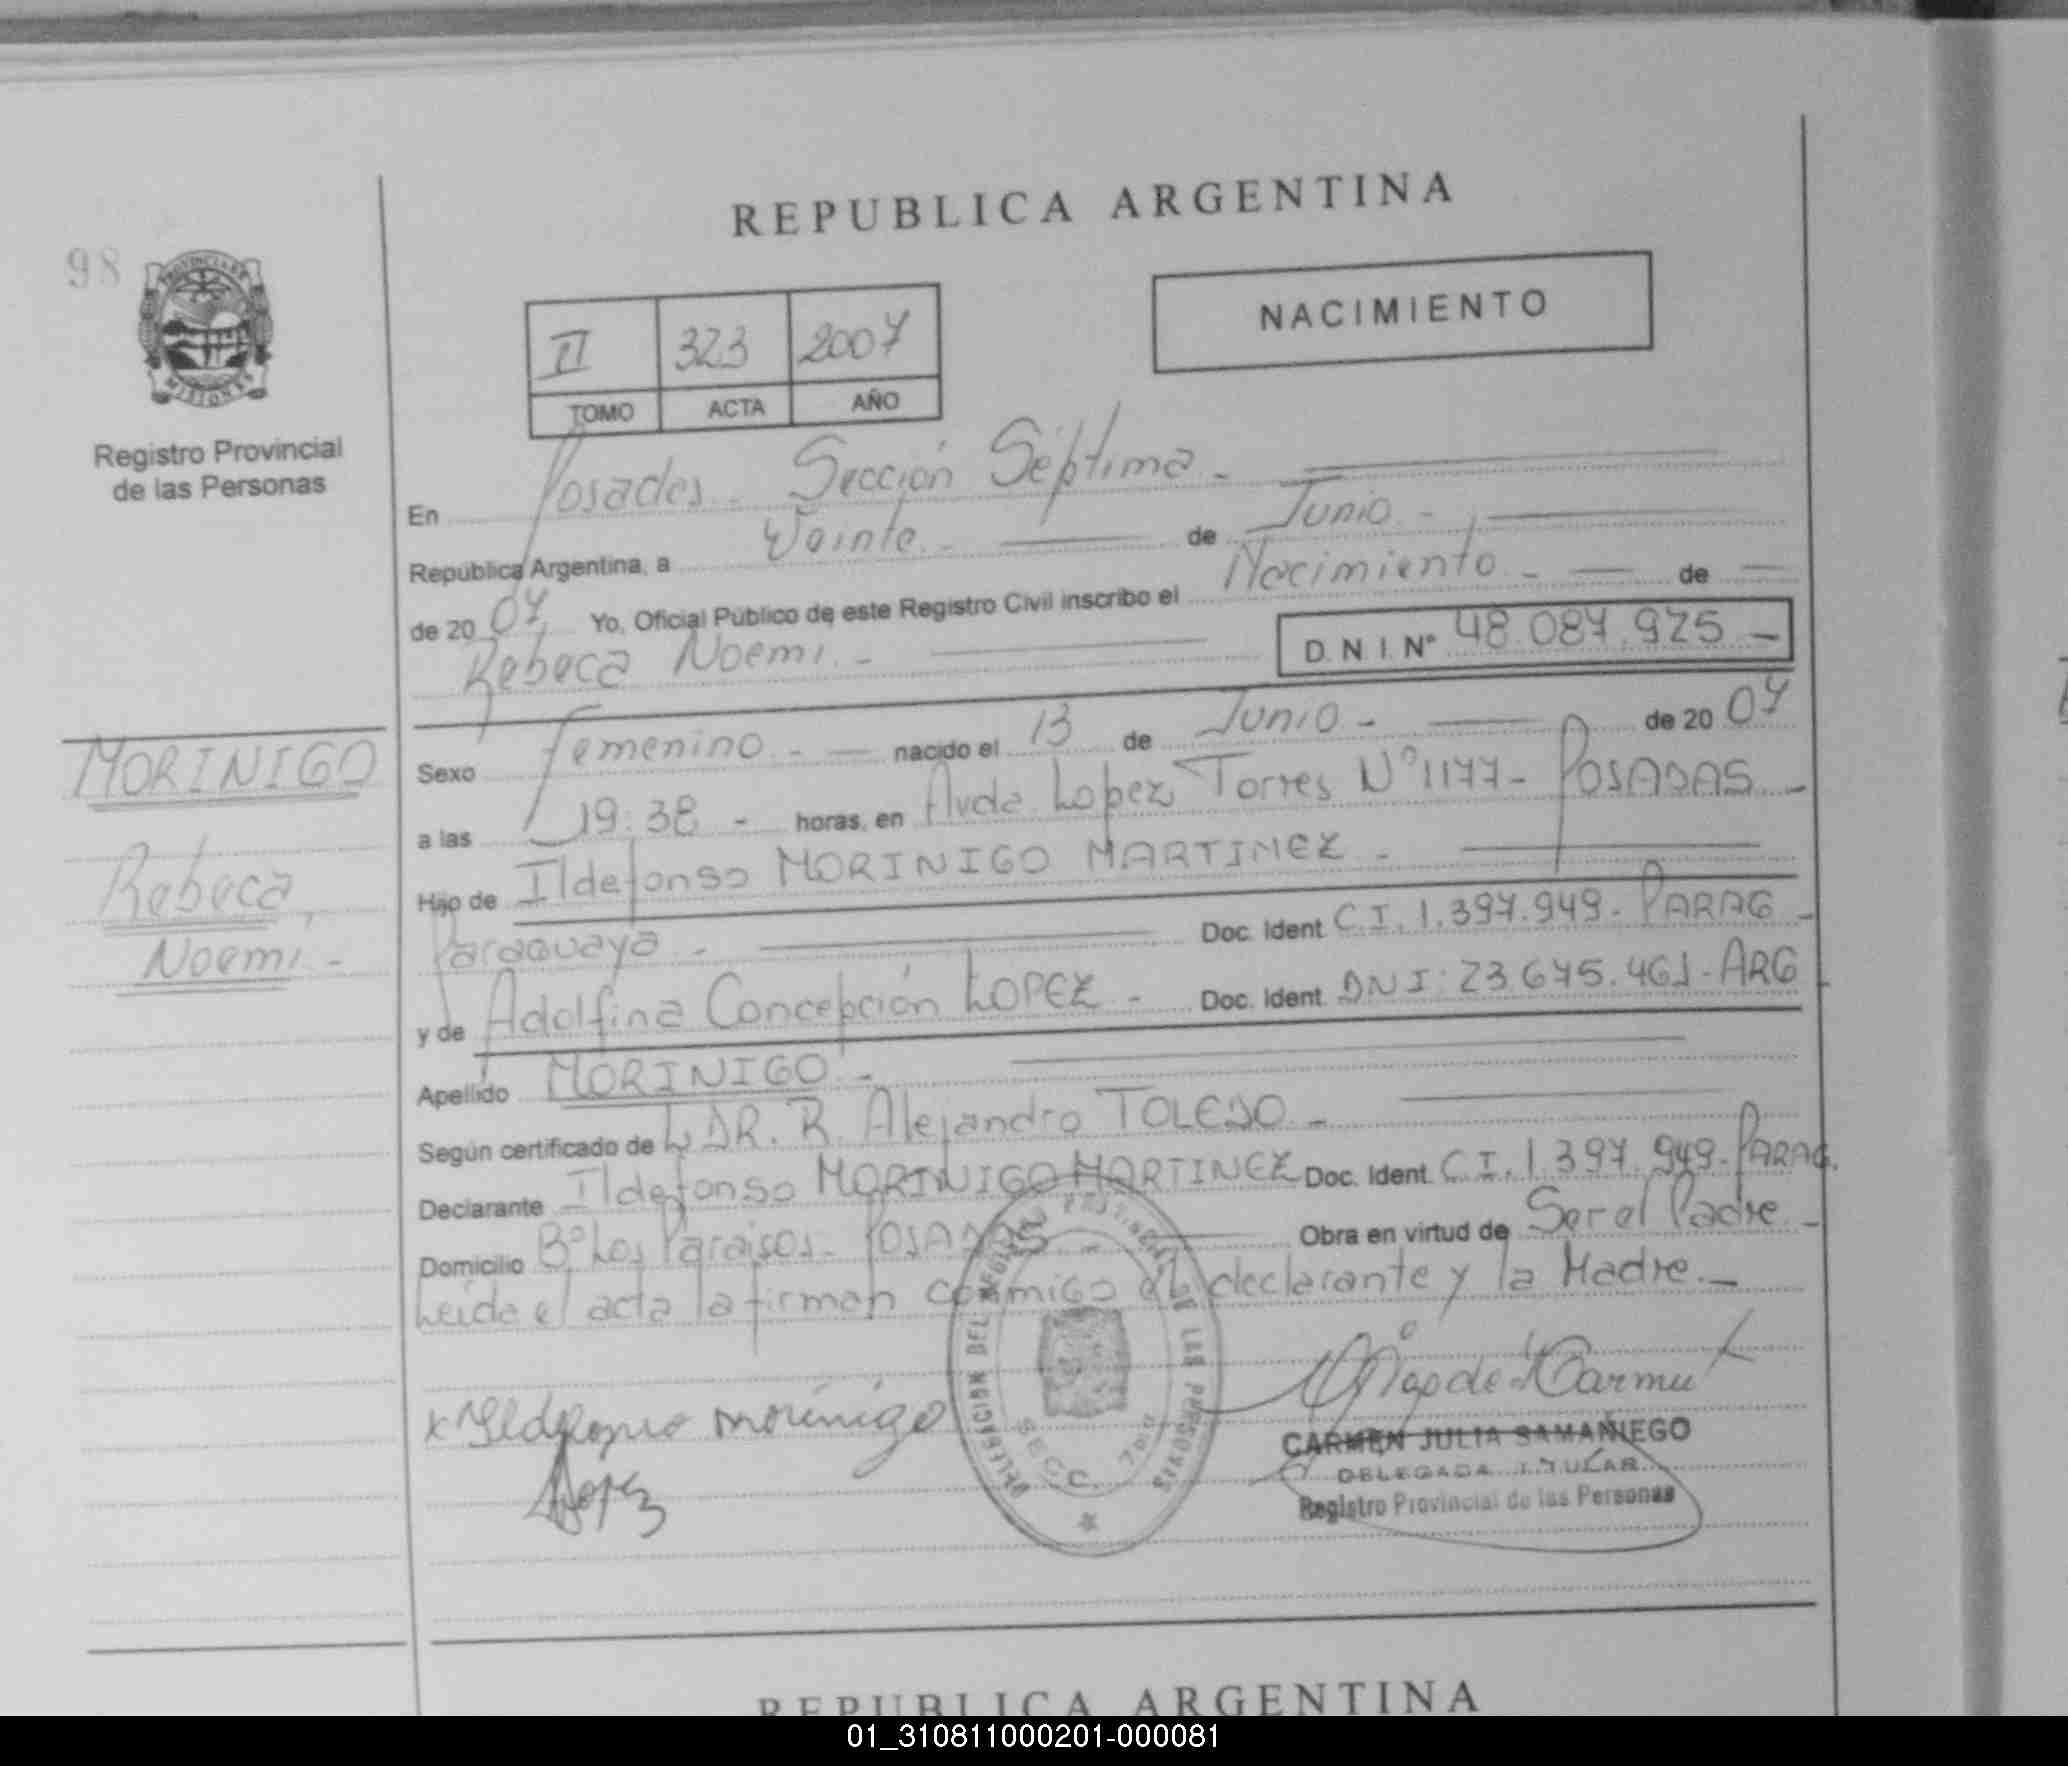 REPUBLICA ARGENTINA
98
PROVINCIA DE
MISIONES
NACIMIENTO
II 323 2007
TOMO ACTA AÑO
Registro Provincial
de las Personas
En Posadas - Sección Séptima -
República Argentina, a Veinte - de Junio -
de 20 07 Yo, Oficial Público de este Registro Civil inscribo el Nacimiento - de
Rebeca Noemi - D. N. I. Nº 48.087.925 -
MORINIGO
Rebeca
Noemi -
Sexo Femenino - nacido el 13 de Junio - de 20 07
a las 19:38 - horas, en Avda Lopez Torres Nº 1177 - POSADAS -
Hijo de Ildefonso MORINIGO MARTINEZ -
Paraguaya - Doc. Ident. C I. 1.397.949 - PARAG -
y de Adolfina Concepción LOPEZ - Doc. Ident. DNI: 23.675.461 - ARG
Apellido MORINIGO -
Según certificado de L DR. R. Alejandro TOLEDO -
Declarante Ildefonso MORINIGO MARTINEZ Doc. Ident. C I. 1.397.949 - PARAG.
Domicilio Bº Los Paraisos - POSADAS Obra en virtud de Ser el Padre -
Leída el acta la firman conmigo el declarante y la Madre. -
DELEGACION DEL REGISTRO PROVINCIAL DE LAS PERSONAS
SECC. 7ma
x Ildefonso morinigo
Lopez
CARMEN JULIA SAMAÑIEGO
DELEGADA TITULAR
Registro Provincial de las Personas
REPUBLICA ARGENTINA
01_310811000201-000081